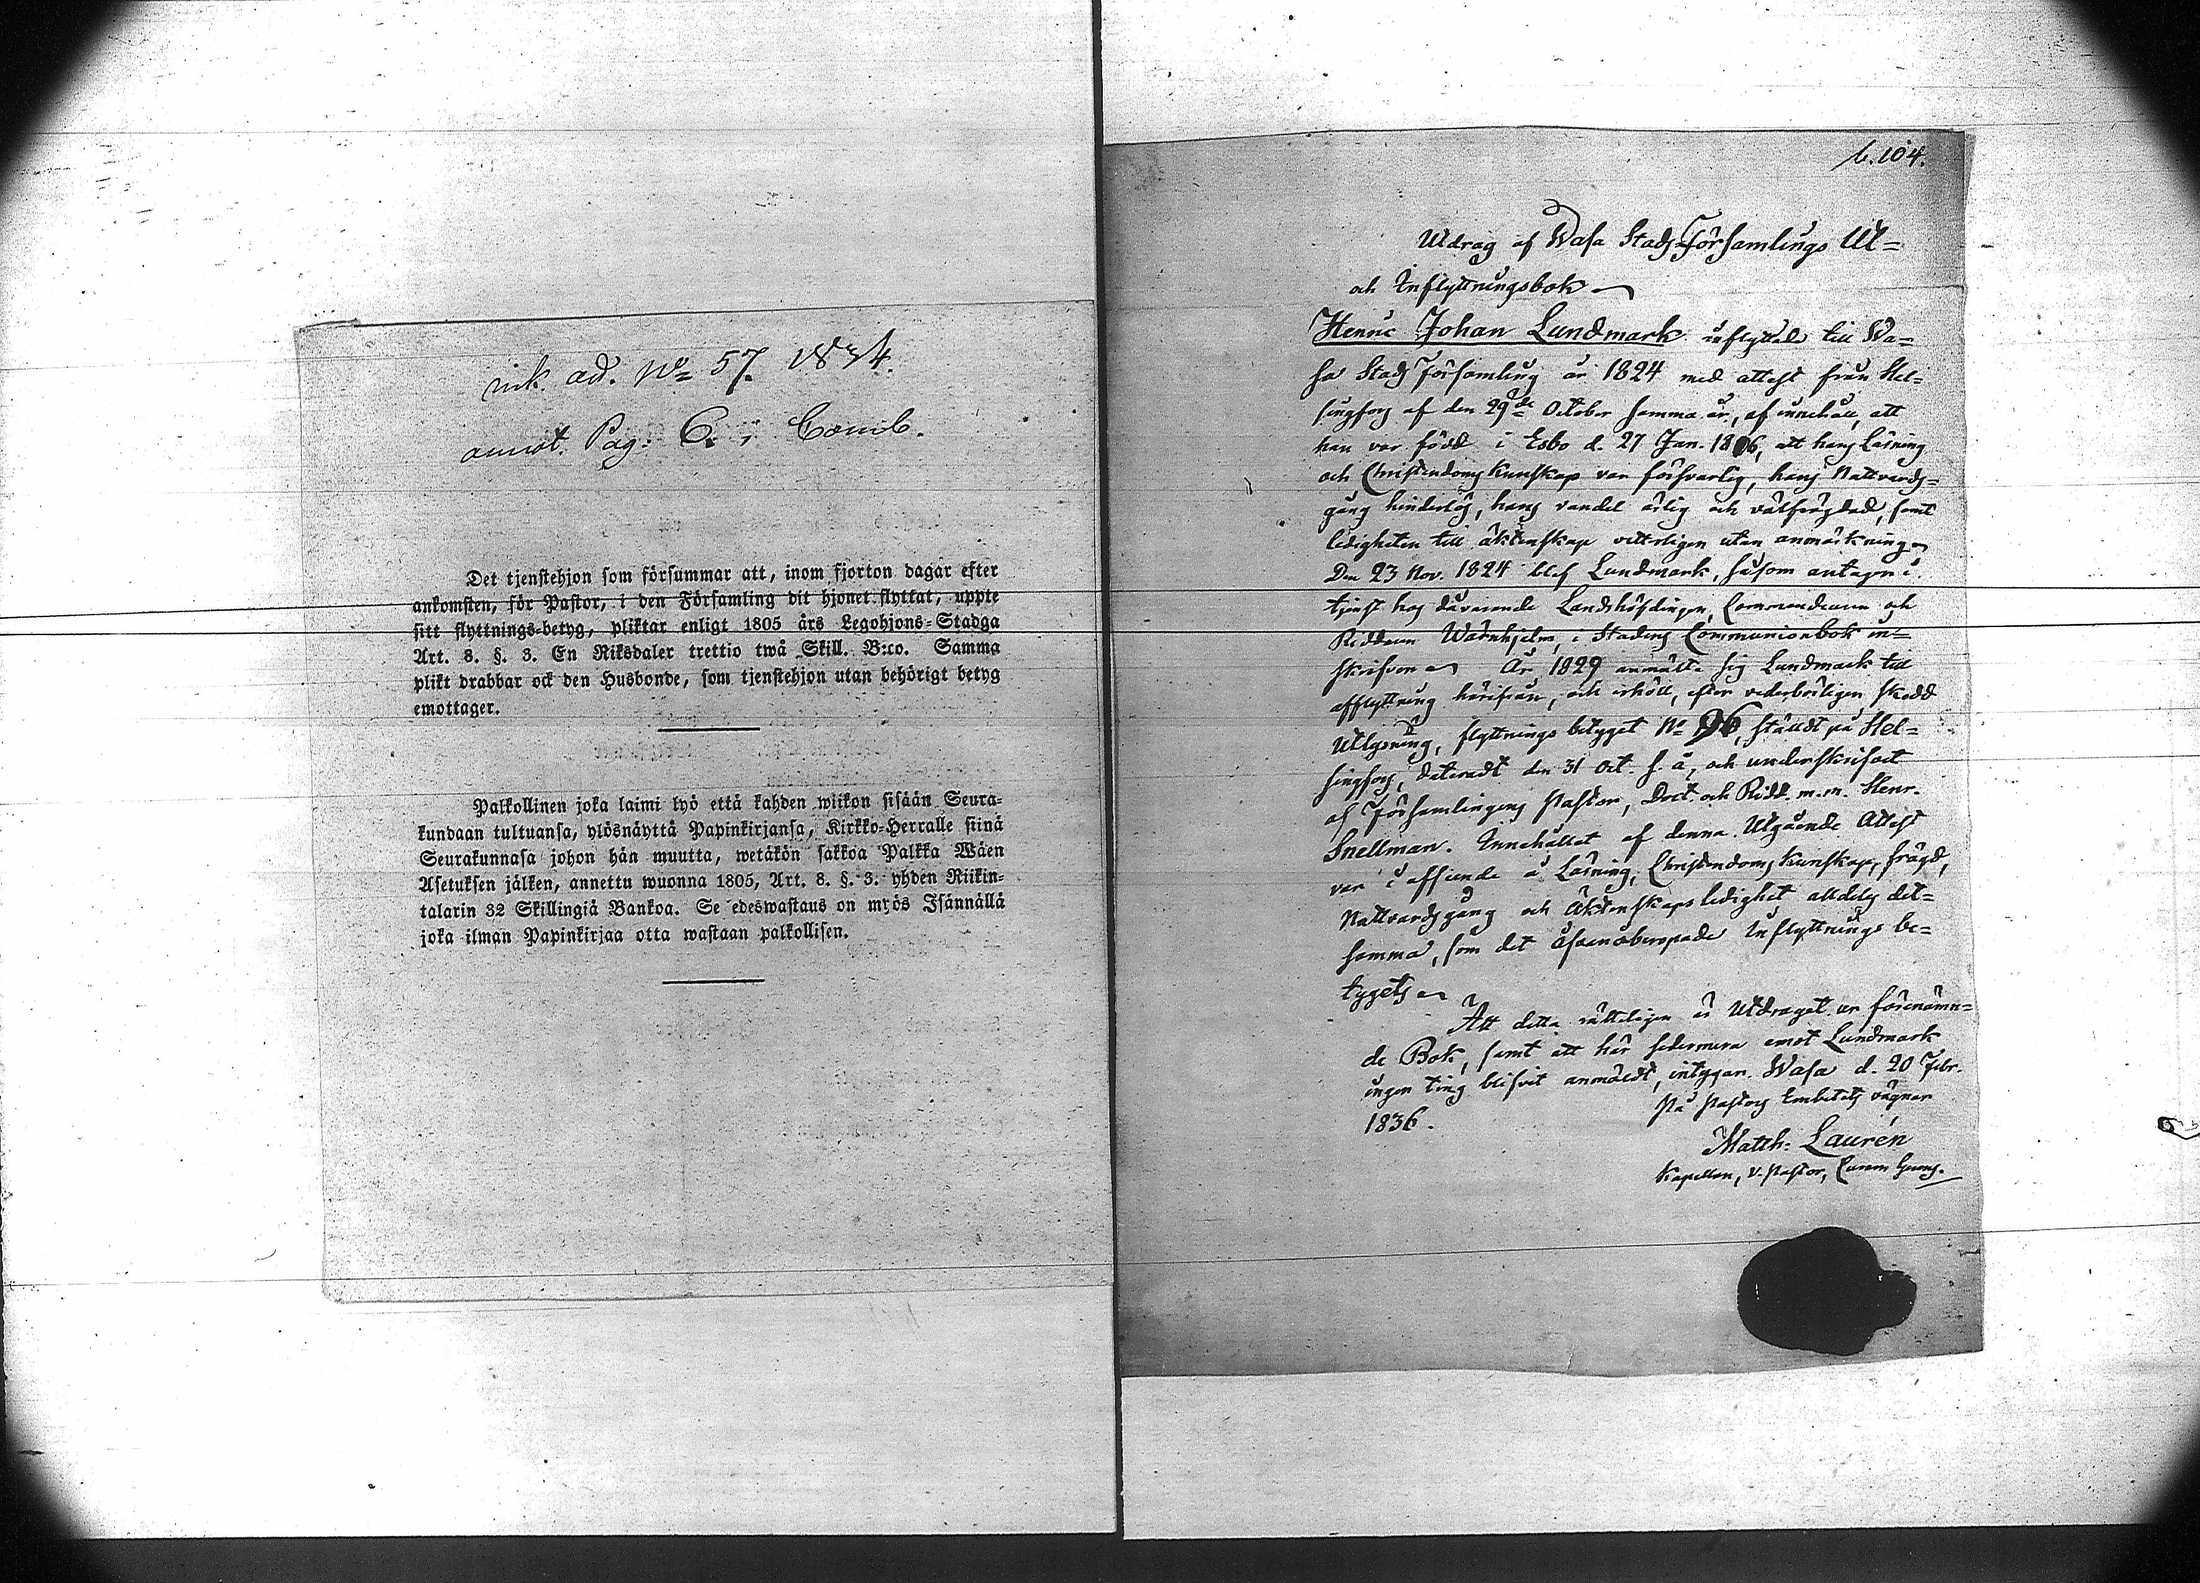 ink. ad. No 57. 1834.
annot. Pag: 6. i Comb.
Det tjenstehjon som försummar att, inom fjorton dagar efter
ankomsten, för Pastor, i den Församling dit hjonet flyttat, uppte
sitt flyttnings-betyg, pliktar enligt 1805 års Legohjons-Stadga
Art. 8. §. 3. En Riksdaler trettio twå Skill. B:co. Samma
plikt drabbar ock den Husbonde, som tjenstehjon utan behörigt betyg
emottager.
Palkollinen joka laimi lyö että kahden wiikon sisään Seura-
kundaan tultuansa, ylösnäyttä Papinkirjansa, Kirkko-Herralle siinä
Seurakunnasa johon hän muutta, wetäkön sakkoa Palkka Wäen
Asetuksen jälken, annettu wuonna 1805, Art. 8. §. 3. yhden Riikin-
talarin 32 Skillingiä Bankoa. Se edeswastaus on myös Isännällä
joka ilman Papinkirjaa otta wastaan palkollisen.
b. 104.
Utdrag af Wasa Stads Församlings Ut-
och Inflyttningsbok
Henric Johan Lundmark inflyttade till Wa-
sa Stads Församling år 1824 med attest från Hel-
singfors af den 29de October samma år, af innehåll, att
han var född i Esbo d. 27 Jan. 1806, att hans Läsning
och Christendoms kunskap var försvarlig, hans Nattvards-
gång hinderlös, hans vandel ärlig och välfrägdad, samt
ledigheten till äktenskap vitterligen utan anmärkning
Den 23 Nov. 1824 blef Lundmark, såsom antagen i
tjenst hos dåvarende Landshöfdingen, Commendeuren och
Riddaren Wärnhjelm, i Stadens Communionbok in-
skrifven År 1829 anmälte sig Lundmark till
afflyttning härifrån, och erhöll, efter vederbörligen skedd
Utlysning, flyttnings betyget No 96, ställdt på Hel-
singfors, dateradt den 31 Oct. s. å, och underskrifvet
af Församlingens Pastor, Doct. och Ridd. m.m. Henr.
Snellman. Innehållet af denna Utgående Attest
var i afseende å Läsning, Christendoms kunskap, frägd,
Nattvardsgång och Äktenskaps ledighet alldeles det-
samma, som det åfvanåberopade Inflyttnings be-
tygets
Att detta rätteligen är Utdraget ur förenämn-
de Bok, samt att här sedermera emot Lundmark
ingen ting blifvit anmäldt, intygar. Wasa d. 20 Febr.
1836. På Pastors Embetets vägnar
Matth: Laurén
Kapellan, v. Pastor,